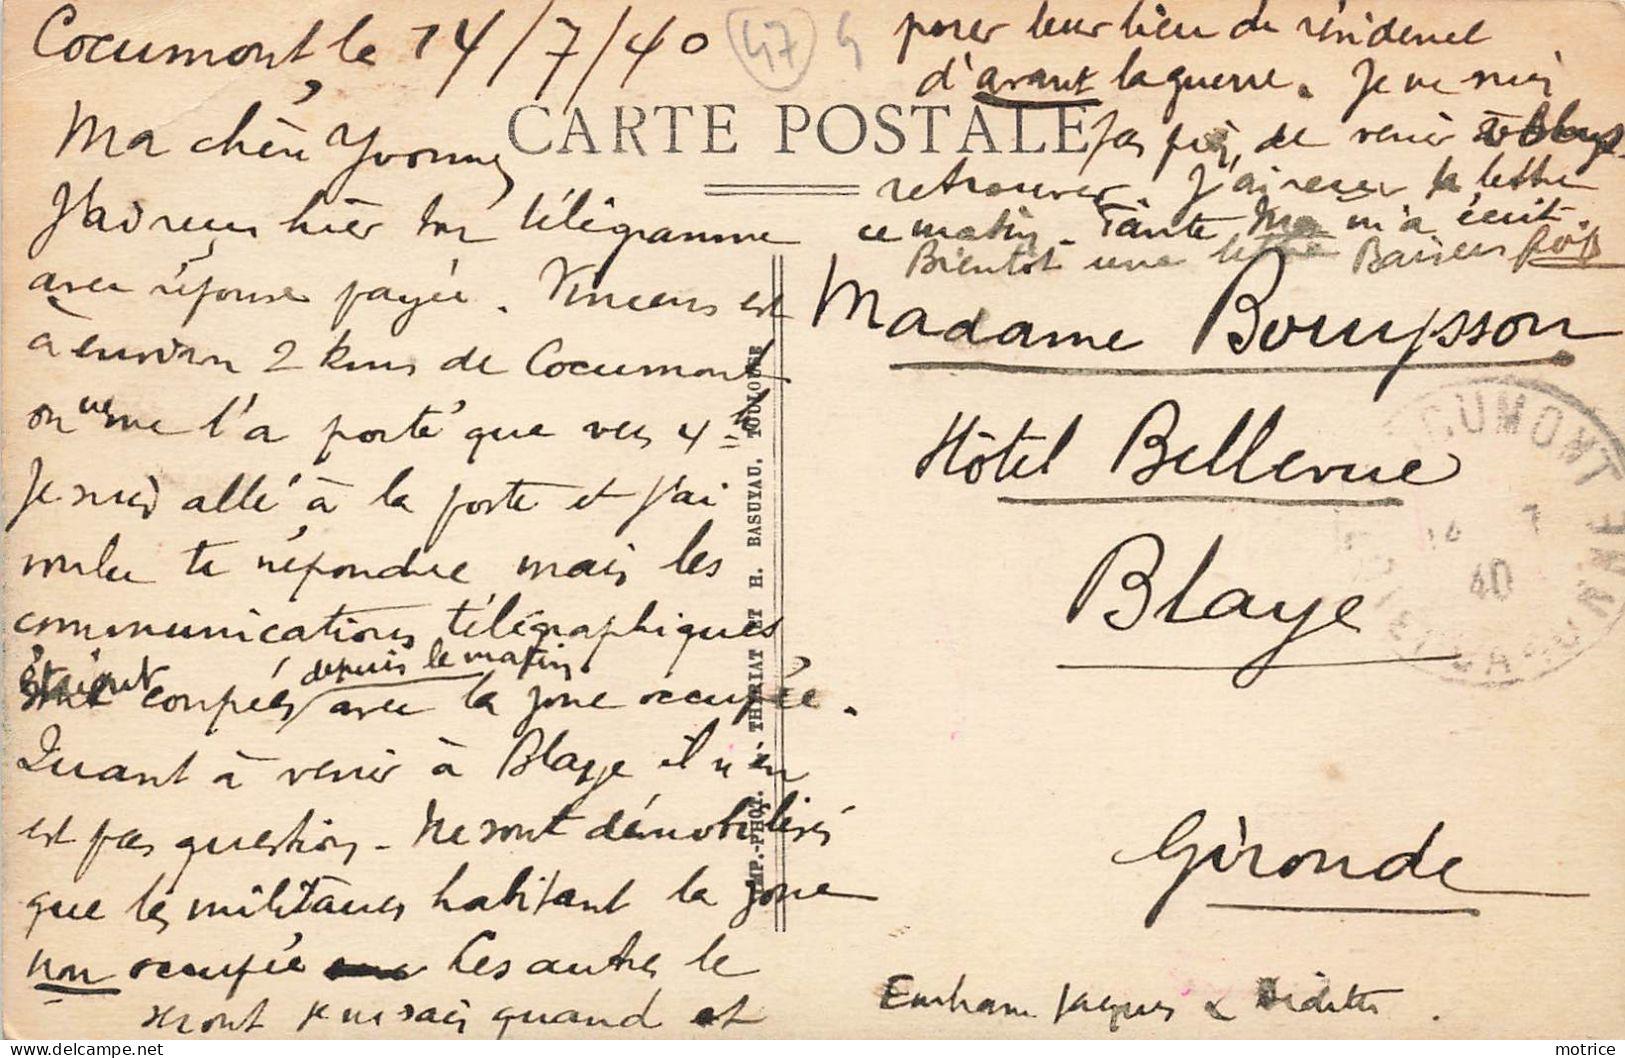 Cocumont, le 14/7/40
47
Ma chère Yvonne,
J'ai reçu hier ton télégramme
avec réponse payée. Vincens est
à environ 2 kms de Cocumont
on ne me l'a porté que vers 4 h
Je suis allé à la poste et j'ai
voulu te répondre mais les
communications télégraphiques
étaient coupées depuis le matin avec la zone occupée.
Quant à venir à Blaye il n'en
est pas question. Ne sont démobilisés
que les militaires habitant la zone
non occupée. Les autres le
seront je ne sais quand et
pour leur lieu de résidence
d'avant la guerre. Je ne suis
pas près, de venir à Blaye
retrouver. J'ai reçu ta lettre
ce matin. Tante Ma m'a écrit.
Bientôt une lettre Baisers
CARTE POSTALE
IMP.-PHOT. THIRIAT ET H. BASUYAU, TOULOUSE
Madame Bouysson
Hôtel Bellevue
Blaye
Gironde
COCUMONT
14 7
40
LOT-ET-GARONNE
Embrasse Jacques &
motrice